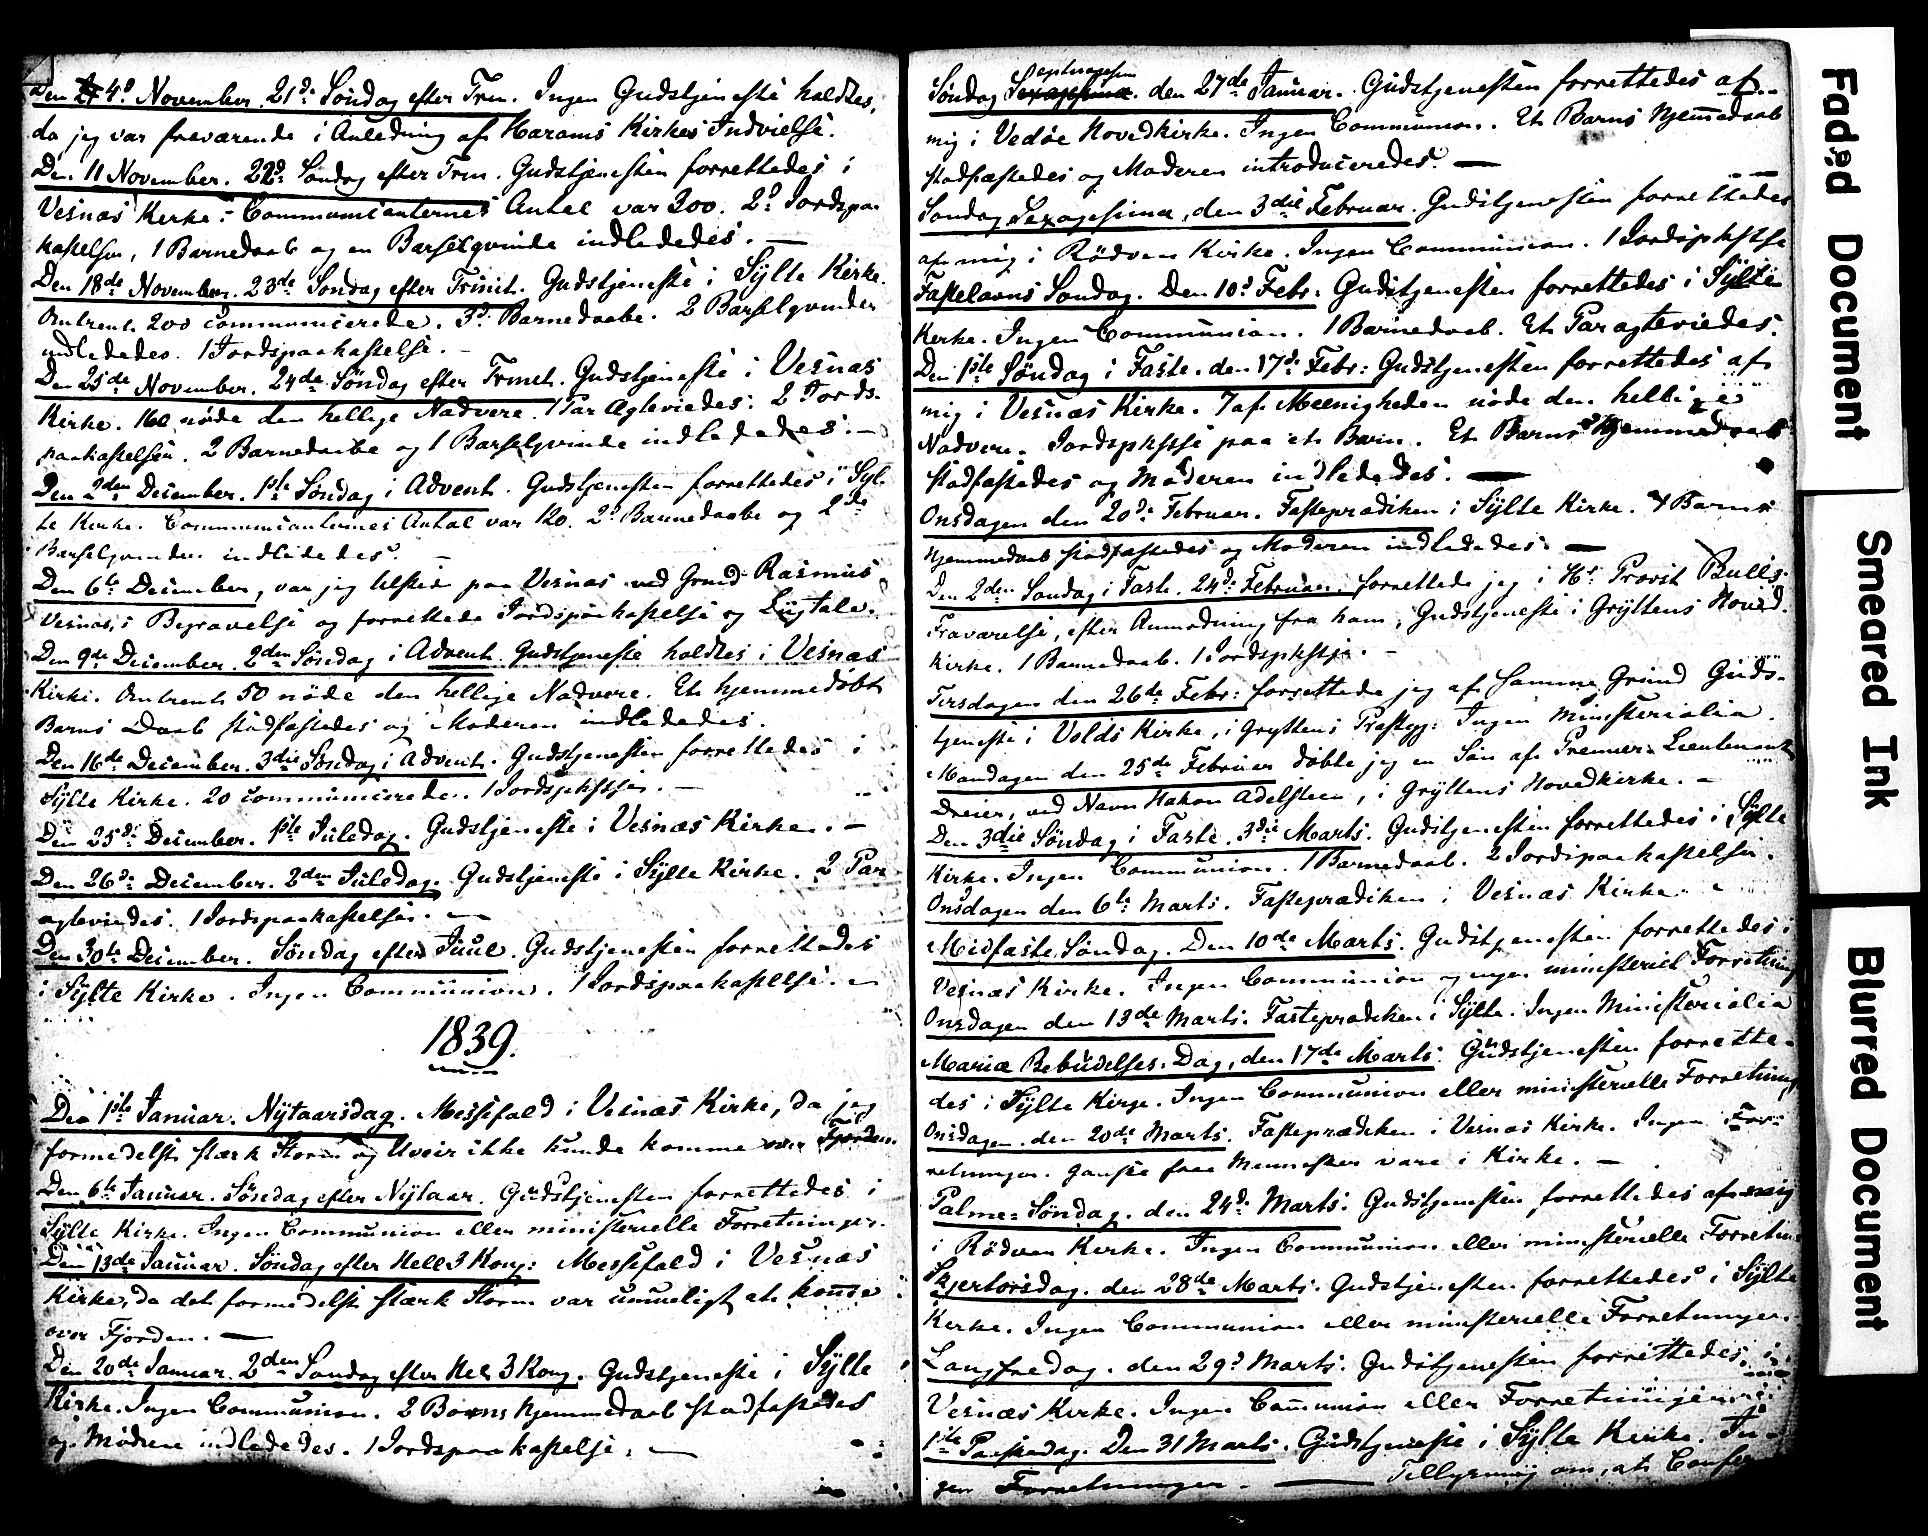 Den 4d November. 21de Söndag efter Trin. Ingen Gudstjeneste holdtes,
da jeg var fraværende i Anledning af Harams Kirkes Indvielse.
Den 11 November. 22d Söndag efter Trin. Gudstjenesten forrettedes i
Vesnæs Kirke. Communicanternes Antal var 300. 2de Jordspaa-
kastelser, 1 Barnedaab og en Barselqvinde indlededes. —
Den 18de November. 23de Söndag efter Trinit. Gudstjeneste i Sylte Kirke.
Omtrent 200 communicerede. 3de Barnedaabe. 2 Barselqvinder
indlededes. 1 Jordspaakastelse. —
Den 25de November. 24de Söndag efter Trinit. Gudstjeneste i Vesnæs
Kirke. 160 nöde den hellige Nadvere. 1 Par Ægteviedes. 2 Jords-
paakastelser. 2 Barnedaabe og 1 Barselqvinde indlededes. —
Den 2den December. 1ste Söndag i Advent. Gudstjenesten forrettedes i Syl-
te Kirke. Communicanternes Antal var 120. 2de Barnedaabe og 2de
Barselqvinder indlededes. —
Den 6te December, var jeg tilstede paa Vesnæs ved Gmd. Rasmus
Vesnæs's Begravelse og forrettede Jordspaakastelse og Ligtale.
Den 9de December. 2den Söndag i Advent. Gudstjeneste holdtes i Vesnæs
Kirke. Omtrent 50 nöde den hellige Nadvere. Et hjemmedöbt
Barns Daab stadfæstedes og Moderen indlededes.
Den 16de December. 3die Söndag i Advent. Gudstjenesten forrettedes i
Sylte Kirke. 20 communicerede. 1 Jordspkstse. —
Den 25de December. 1ste Juledag. Gudstjeneste i Vesnæs Kirke. —
Den 26de December. 2den Juledag. Gudstjeneste i Sylte Kirke. 2 Par
ægteviedes. 1 Jordspaakastelse. —
Den 30te December. Söndag efter Juul. Gudstjenesten forrettedes
i Sylte Kirke. Ingen Communion. 1 Jordspaakastelse. —
1839.
Den 1ste Januar. Nytaarsdag. Messefald i Vesnæs Kirke, da jeg
formedelst stærk Storm og Uveir ikke kunde komme over Fjorden.
Den 6te Januar. Söndag efter Nytaar. Gudstjenesten forrettedes i
Sylte Kirke. Ingen Communion eller ministerielle Forretninger.
Den 13de Januar. Söndag efter Hell 3 Kong: Messefald i Vesnæs
Kirke, da det formedelst stærk Storm var umueligt at komme
over Fjorden. —
Den 20de Januar. 2den Söndag efter Hel 3 Kong. Gudstjeneste i Sylte
Kirke. Ingen Communion. 2 Börns Hjemmedaab stadfæstedes
og Mödrene indlededes. 1 Jordspaakastelse. —
Söndag Septuagesim. den 27de Januar. Gudstjenesten forrettedes af
mig i Vedöe Hovedkirke. Ingen Communion. Et Barns Hjemmedaab
stadfæstedes og Moderen introduceredes. —
Söndag Sexagesima, den 3die Februar. Gudstjenesten forrettedes
af mig i Rödven Kirke. Ingen Communion. 1 Jordspkstse
Fastelavns Söndag. Den 10d Febr: Gudstjenesten forrettedes i Sylte
Kirke. Ingen Communion. 1 Barnedaab. Et Par ægteviedes.
Den 1ste Söndag i Faste. den 17de Febr: Gudstjenesten forrettedes af
mig i Vesnæs Kirke. 7 af Meenigheden nöde den hellige
Nadvere. Jordspkstse paa et Barn. Et Barns Hjemmedaab
stadfæstedes og Moderen indlededes. —
Onsdagen den 20de Februar. Fasteprædiken i Sylte Kirke. 1 Barns
Hjemmedaab stadfæstedes og Moderen indlededes. —
Den 2den Söndag i Faste. 24de Februar. forrettede jeg i Hr Provst Bulls
Fraværelse, efter Anmodning fra ham, Gudstjeneste i Gryttens Hoved-
Kirke. 1 Barnedaab. 1 Jordspkstse. —
Tirsdagen den 26de Febr: forrettede jeg af samme Grund Guds-
tjeneste i Volds Kirke, i Gryttens Præstgj: Ingen Ministerialia.
Mandagen den 25de Februar döbte jeg en Sön af Premier-Lieutenant
Dreier, ved Navn Hakon Adelsteen, i Gryttens Hovedkirke. —
Den 3die Söndag i Faste. 3die Marts. Gudstjenesten forrettedes i Sylte
Kirke. Ingen Communion. 1 Barnedaab. 2 Jordspaakastelser.
Onsdagen den 6te Marts. Fasteprædiken i Vesnæs Kirke. —
Midfaste Söndag. Den 10de Marts. Gudstjenesten forrettedes i
Vesnæs Kirke. Ingen Communion og ingen ministeriel Forretning
Onsdagen den 13de Marts. Fasteprædiken i Sylte. Ingen Ministerialia
Mariæ Bebudelses-Dag, den 17de Marts. Gudstjenesten forrette-
des i Sylte Kirke. Ingen Communion eller ministerielle Forretning
Onsdagen den 20de Marts. Fasteprædiken i Vesnæs Kirke. Ingen For-
retninger. Ganske faae Mennesker vare i Kirke. —
Palme-Söndag. den 24d Marts. Gudstjenesten forrettedes af mig
i Rödven Kirke. Ingen Communion eller ministerielle Forretn
Skjertorsdag. den 28de Marts. Gudstjenesten forrettedes i Sylte
Kirke. Ingen Communion eller ministerielle Forretninger.
Langfredag. den 29d Marts. Gudstjenesten forrettedes i
Vesnæs Kirke. Ingen Communion eller Forretninger.
1ste Paaskedag. Den 31 Marts. Gudstjeneste i Sylte Kirke. In-
gen Forretninger. — Tillysning om, at Confer
Faded Document
Smeared Ink
Blurred Document